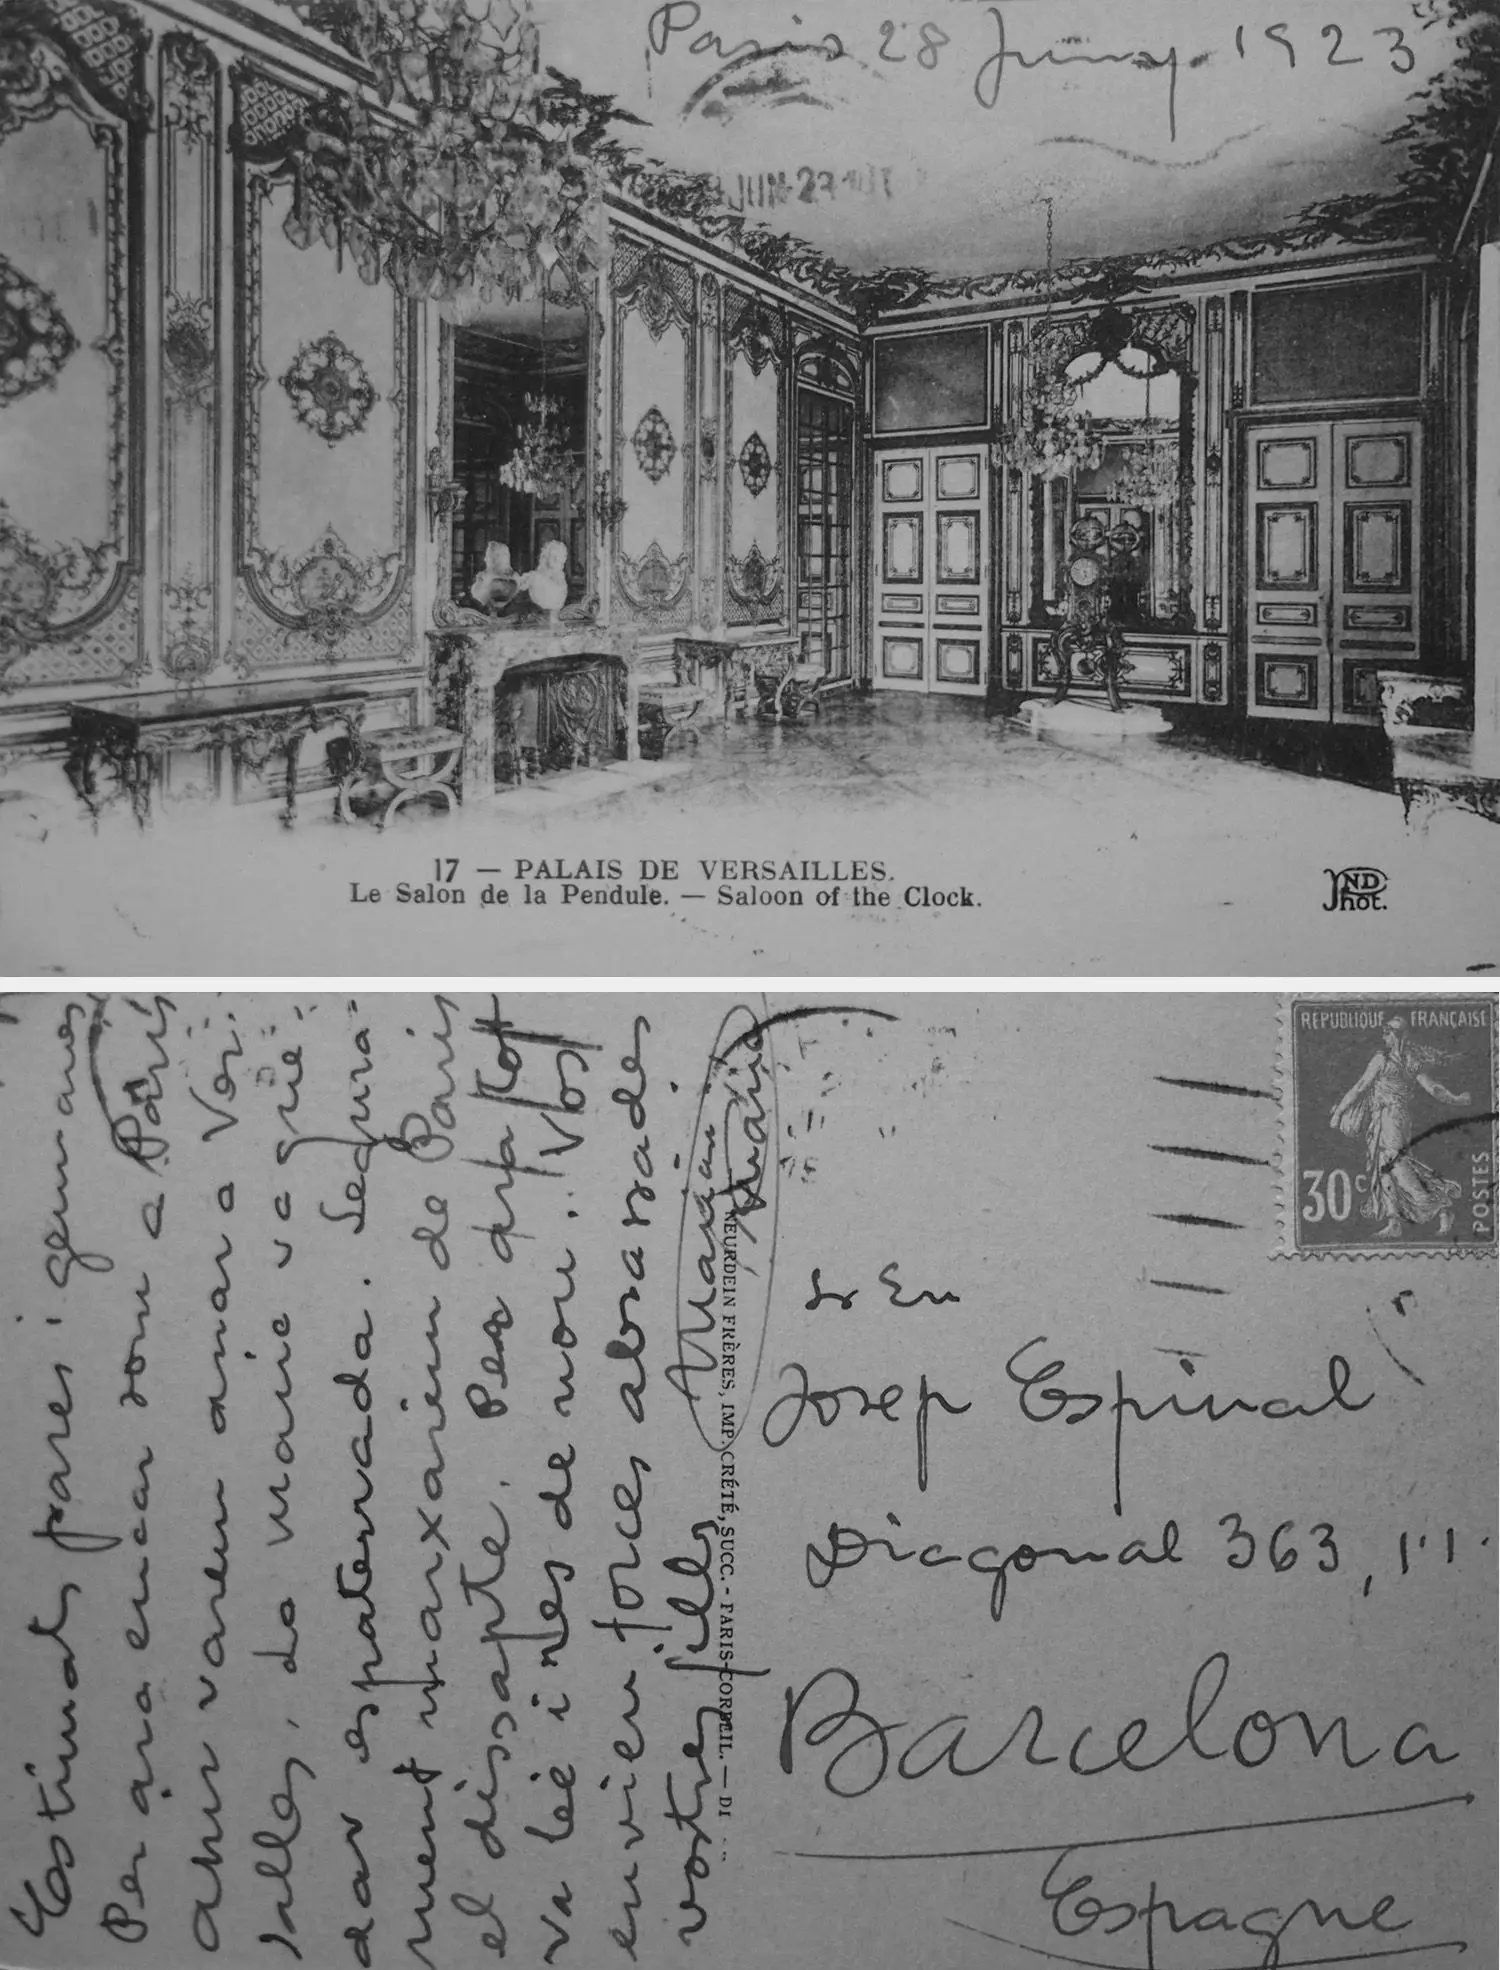 Paris 28 Juny 1923
JUN-27
17 — PALAIS DE VERSAILLES.
Le Salon de la Pendule. — Saloon of the Clock.
ND
Phot.
Estimats pares i germanes
Per ara encar som a París
ahir varem anar a Ver-
salles, La Marie va que-
dar espaterrada. Segura-
ment marxarem de Paris
el dissapte. Per qui tot
va bé i res de nou. Vos
envien forces abrasades
vostres fills
Marian
Maria
NEURDEIN FRÈRES, IMP. CRÉTÉ, SUCC. - PARIS-CORBEIL. — DI
RÉPUBLIQUE FRANÇAISE
30c
POSTES
Sr En
Josep Espinal
Diagonal 363, 1er 1ª
Barcelona
Espagne